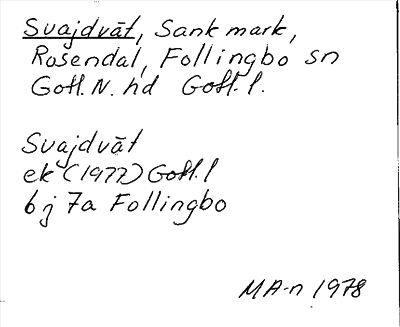 Svajdvāt, Sank mark,
Rosendal, Follingbo sn
Gotl. N. hd Gotl. l.
Svajdvāt
ek (1977) Gotl. l
6 j 7a Follingbo
MA-n 1978